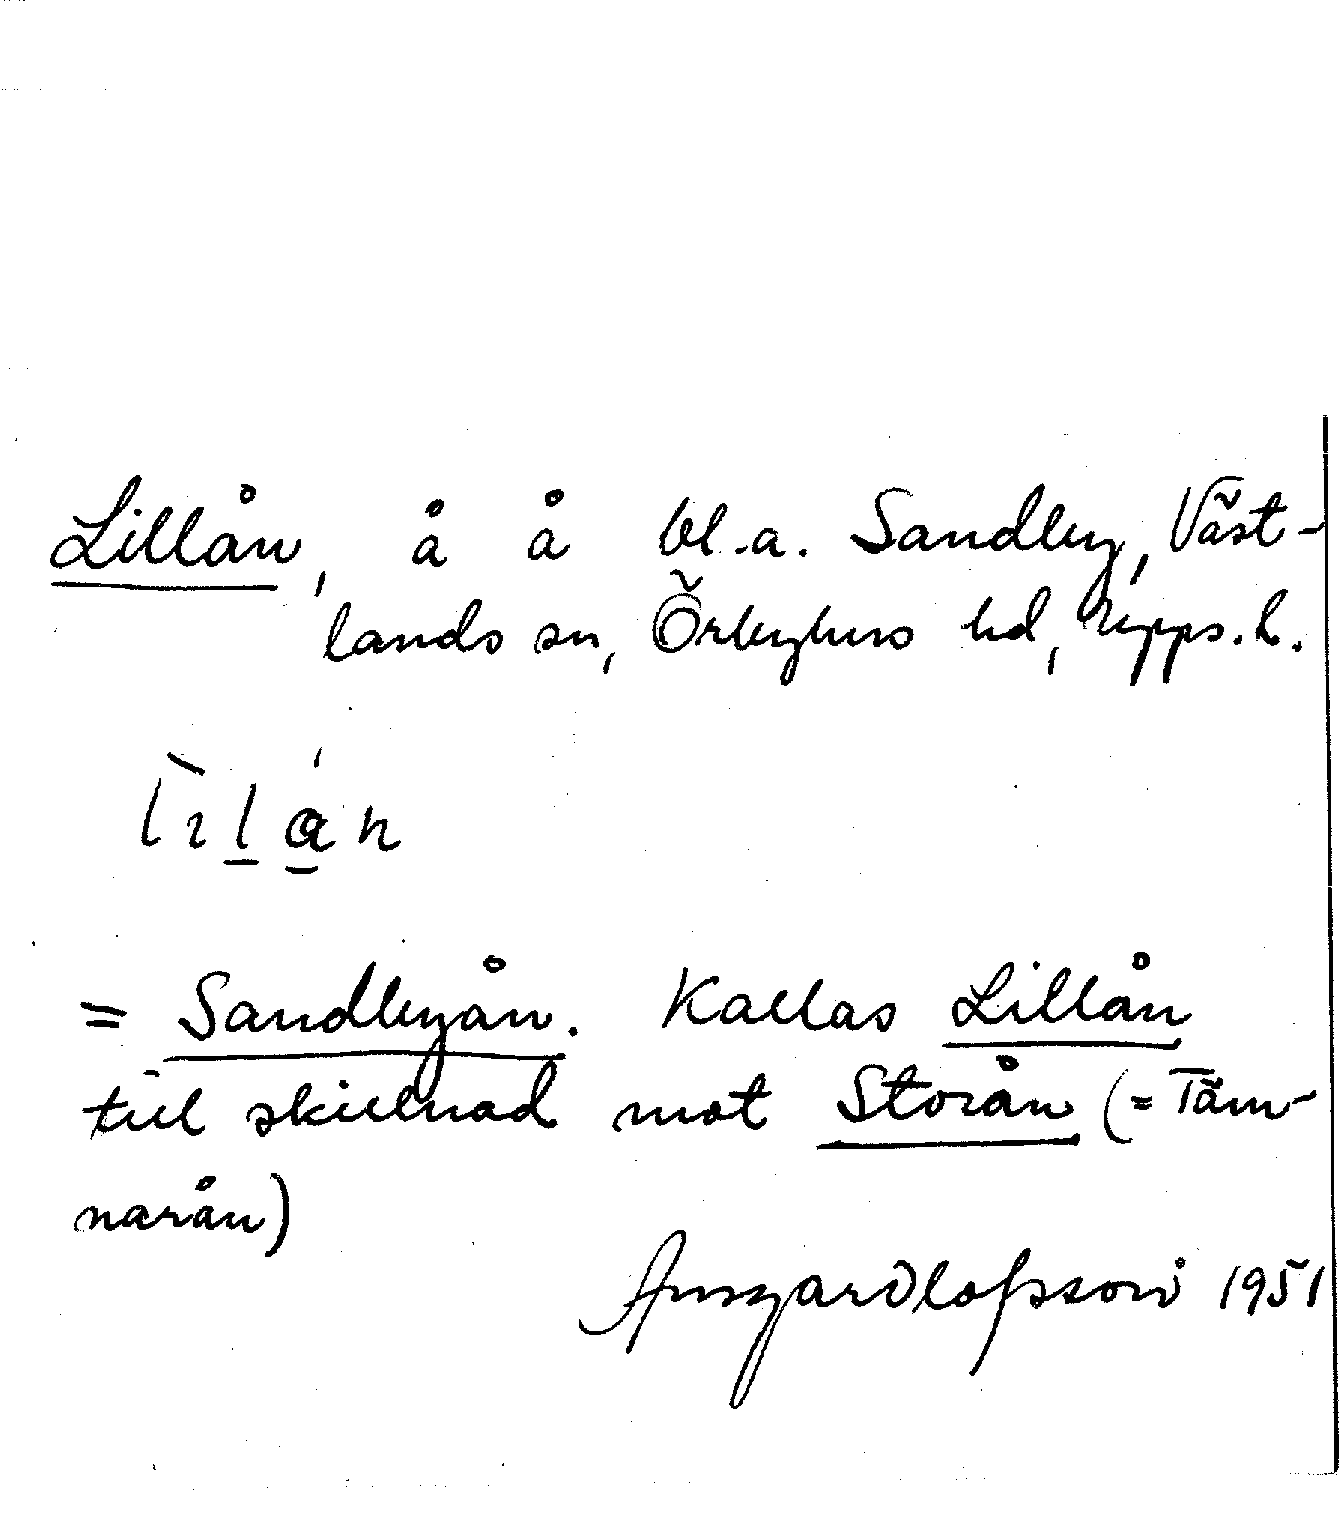 Lillån, å å bl.a. Sandby, Väst-
lands sn, Örbyhus hd, Upps. l.
= Sandbyån. Kallas Lillån
till skillnad mot Storån (= Täm-
narån)
Ansgar Olofsson 1951